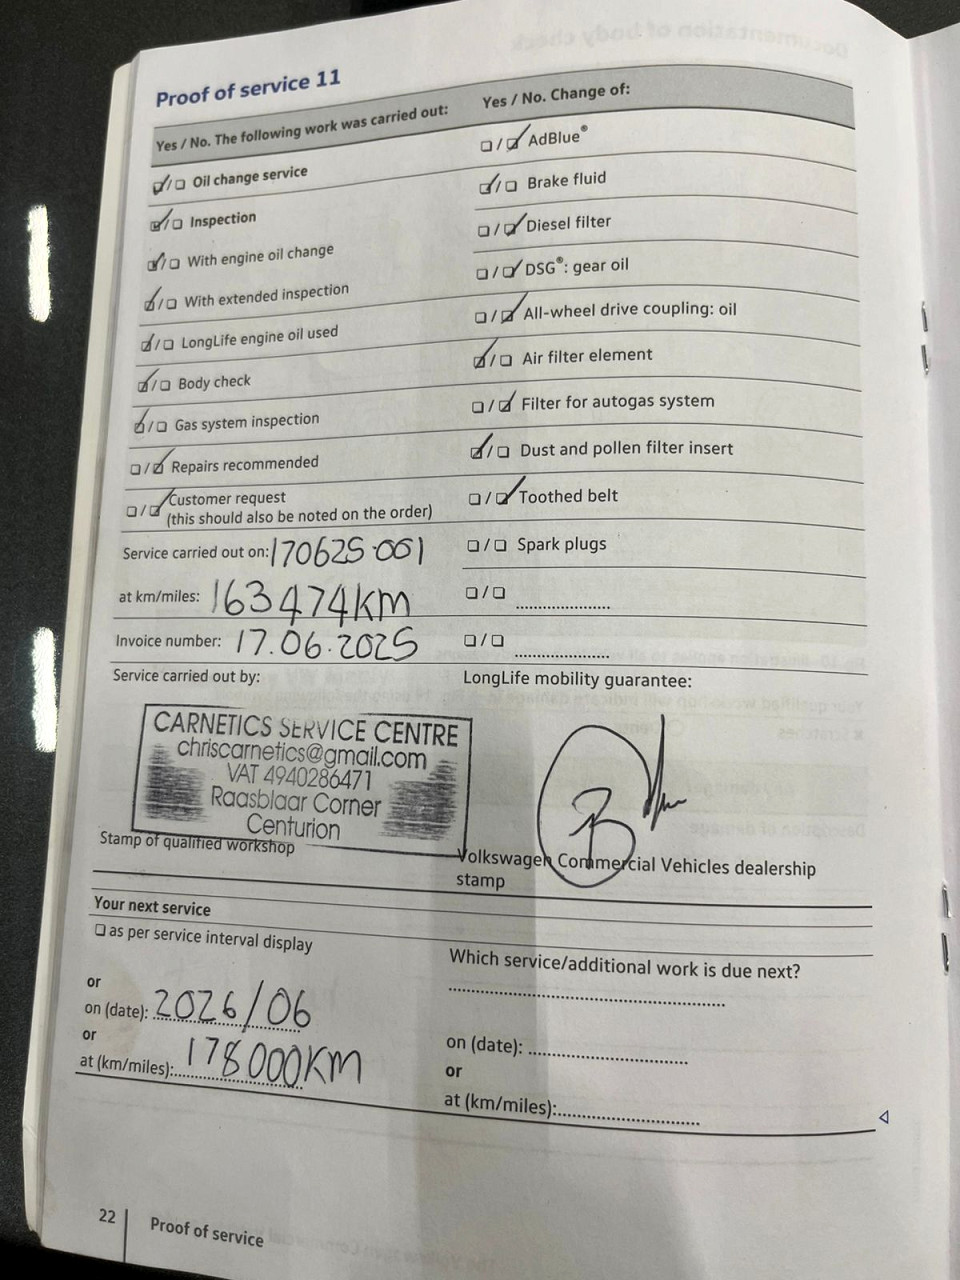 Proof of service 11
Yes / No. The following work was carried out:
Yes / No. Change of:
Oil change service
Inspection
With engine oil change
With extended inspection
LongLife engine oil used
Body check
Gas system inspection
Repairs recommended
Customer request
(this should also be noted on the order)
Service carried out on: 170625-001
at km/miles: 163474KM
Invoice number: 17.06.2025
Service carried out by:
AdBlue®
Brake fluid
Diesel filter
DSG®: gear oil
All-wheel drive coupling: oil
Air filter element
Filter for autogas system
Dust and pollen filter insert
Toothed belt
Spark plugs
LongLife mobility guarantee:
CARNETICS SERVICE CENTRE
chriscarnetics@gmail.com
VAT 4940286471
Raasblaar Corner
Centurion
Stamp of qualified workshop
Volkswagen Commercial Vehicles dealership
stamp
Your next service
as per service interval display
or
on (date): 2026/06
or
at (km/miles): 178000KM
Which service/additional work is due next?
on (date):
or
at (km/miles):
22
Proof of service